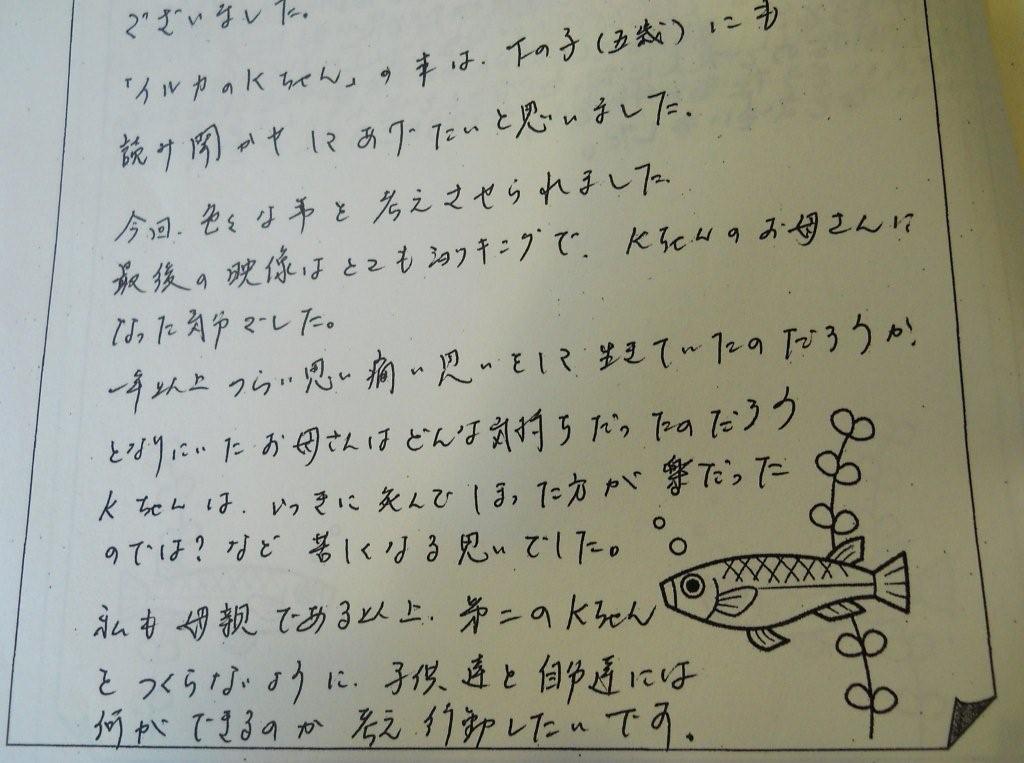 でございました。
「イルカのKちゃん」の本は、下の子(五歳)にも
読み聞かせしてあげたいと思いました。
今回、色々な事を考えさせられました。
最後の映像はとてもショッキングで、Kちゃんのお母さんに
なった気分でした。
一年以上つらい思い痛い思いをして生きていたのだろうか!
となりにいたお母さんはどんな気持ちだったのだろう
Kちゃんは、いっきに死んでしまった方が楽だった
のでは?など苦しくなる思いでした。
私も母親である以上、第二のKちゃん
をつくらないように、子供達と自分達には
何ができるのか考え行動したいです。